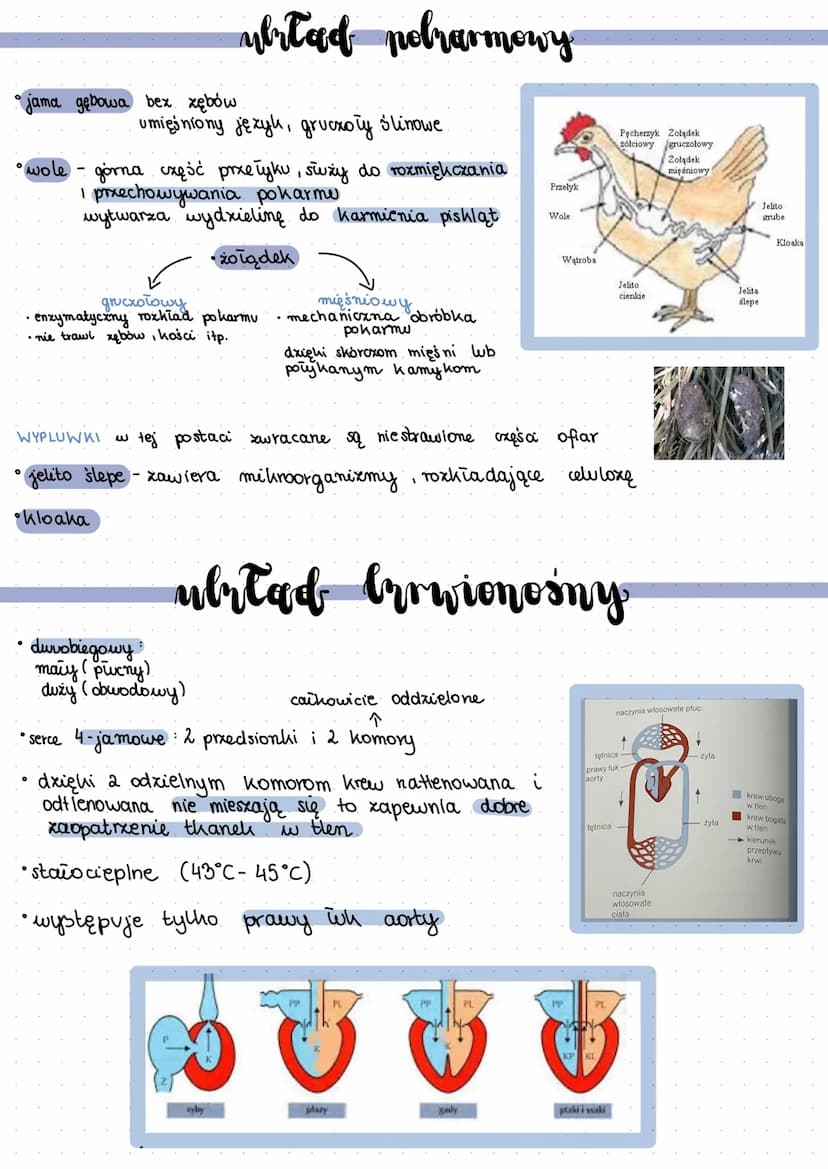 układ pokarmowy
• jama gębowa bez zębów
umięśniony język, gruczoły ślinowe
• wole - górna część przełyku, służy do rozmiękczania
i przechowywania pokarmu
wytwarza wydzielinę do karmienia piskląt
• żołądek
gruczołowy
• enzymatyczny rozkład pokarmu
• nie trawi zębów, kości itp.
mięśniowy
• mechaniczna obróbka
pokarmu
dzięki skórczom mięśni lub
połykanym kamykom
Pęcherzyk
żółciowy
Żołądek
gruczołowy
Żołądek
mięśniowy
Przełyk
Wole
Wątroba
Jelito
cienkie
Jelito
grube
Kloaka
Jelita
ślepe
WYPLUWKI w tej postaci zwracane są niestrawione części ofiar
• jelito ślepe - zawiera mikroorganizmy, rozkładające celulozę
• kloaka
układ krwionośny
• dwuobiegowy:
mały (płucny)
duży (obwodowy)
całkowicie oddzielone
• serce 4-jamowe: 2 przedsionki i 2 komory
• dzięki 2 odzielnym komorom krew natlenowana i
odtlenowana nie mieszają się to zapewnia dobre
zaopatrzenie tkanek w tlen
• stałocieplne (43°C - 45°C)
• występuje tylko prawy łuk aorty
naczynia włosowate płuc
tętnica
żyła
prawy łuk
aorty
tętnica
żyła
krew uboga
w tlen
krew bogata
w tlen
kierunek
przepływu
krwi
naczynia
włosowate
ciała
P
K
Z
ryby
PP PL
K
płazy
PP PL
K
gady
PP PL
KP KL
ptaki i ssaki